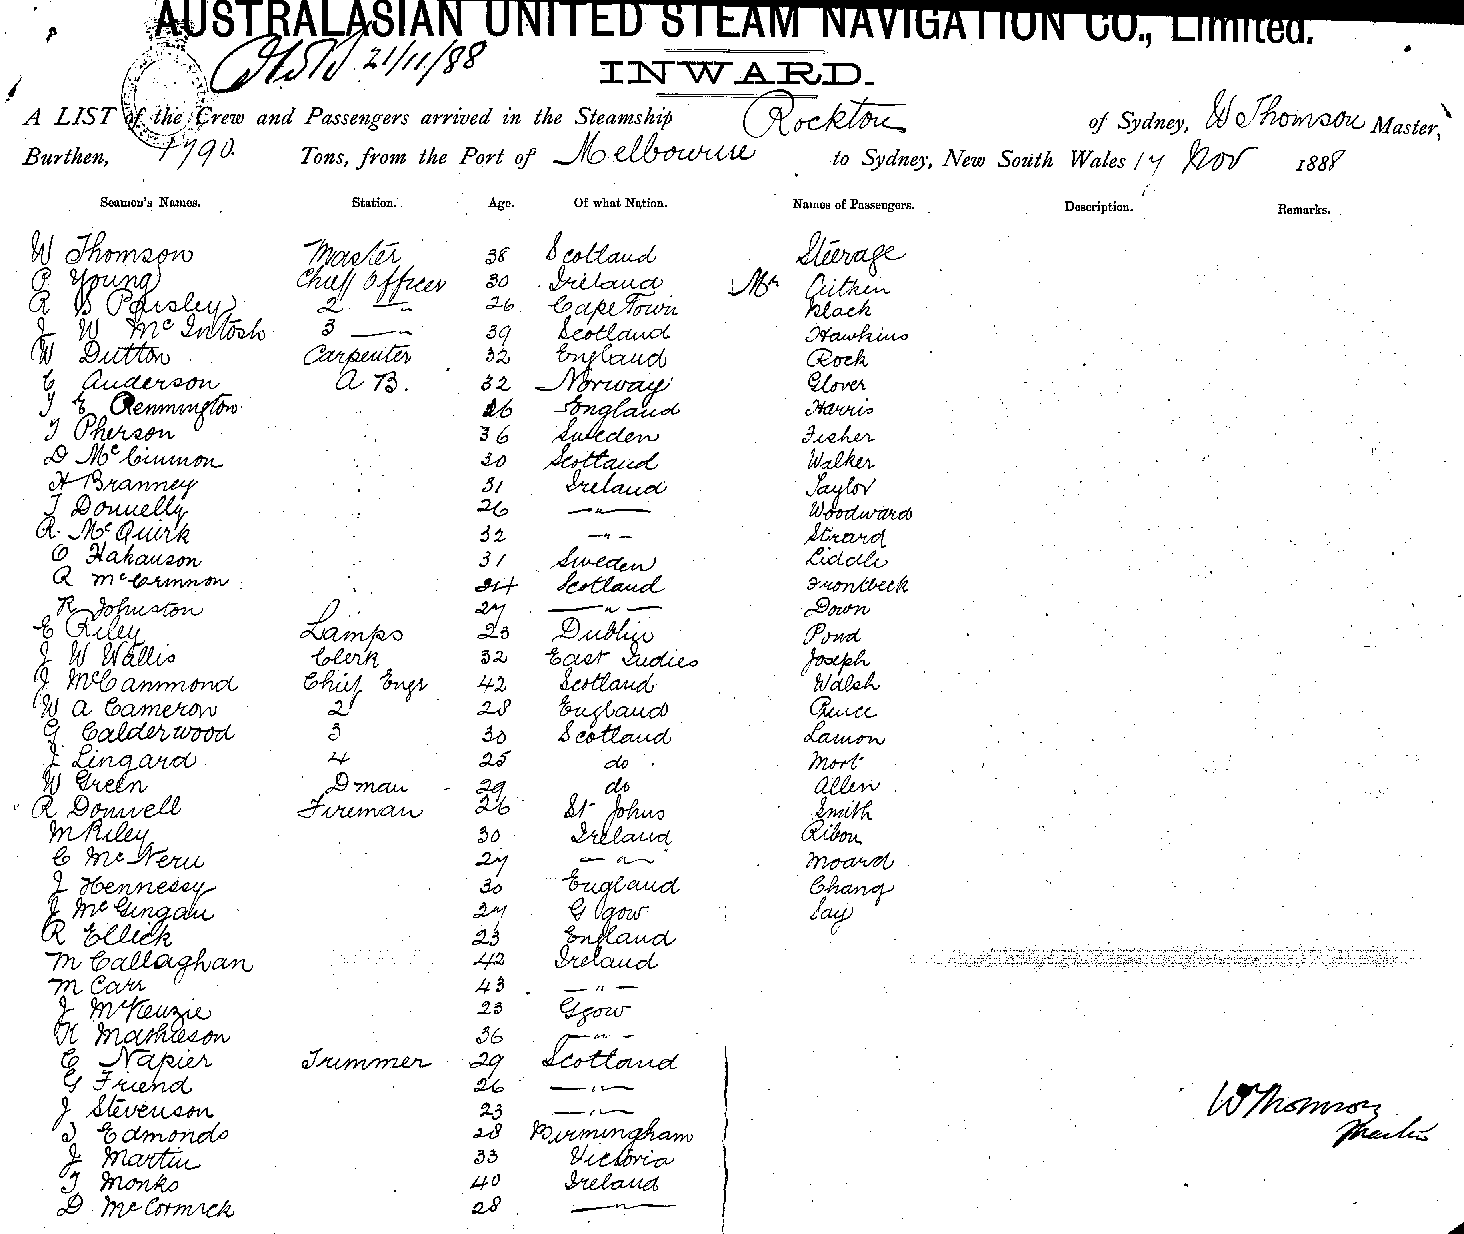 AUSTRALASIAN UNITED STEAM NAVIGATION CO., Limited.
21/11/88
INWARD.
A LIST of the Crew and Passengers arrived in the Steamship Rockton of Sydney, W Thomson Master,
Burthen, 1790. Tons, from the Port of Melbourne to Sydney, New South Wales 17 Nov 1888
Seamen's Names. Station. Age. Of what Nation. Names of Passengers. Description. Remarks.
W Thomson Master 38 Scotland Steerage
P Young Chief Officer 30 Ireland Mr Aitken
R S Parsley 2 —"— 26 Cape Town Black
J W McIntosh 3 —"— 39 Scotland Hawkins
W Dutton Carpenter 32 England Rock
C Anderson A B. 32 Norway Glover
T E Remmington 26 England Harris
T Pherson 36 Sweden Fisher
D McCinmon 30 Scotland Walker
H Branney 31 Ireland Taylor
T Donnelly 26 —"— Woodward
R. McQuirk 32 —"— Strard
O Hakanson 31 Sweden Liddle
A McCrimmon 24 Scotland Frontbeck
R Johnston 27 —"— Down
E Riley Lamps 23 Dublin Pond
J W Wallis Clerk 32 East Indies Joseph
J McCammond Chief Engr 42 Scotland Walsh
W A Cameron 2 28 England Pence
G Calderwood 3 30 Scotland Lamon
J Lingard 4 25 do Mort
W Green Dman 29 do Allen
R Donwell Fireman 26 St Johns Smith
M Riley 30 Ireland Ribon
C McNeru 27 —"— Moard
J Hennessy 30 England Chang
J McGingan 27 G gow Say
R Elleck 23 England
M Callaghan 42 Ireland
M Carr 43 —"—
J McKenzie 23 Ggow
K Mathieson 36 —"—
C Napier Trimmer 29 Scotland
G Friend 26 —"—
J Stevenson 23 —"—
T Edmonds 28 Birmingham
J Martin 33 Victoria
T Monks 40 Ireland
D McCormick 28 —"—
W Thomson
Master